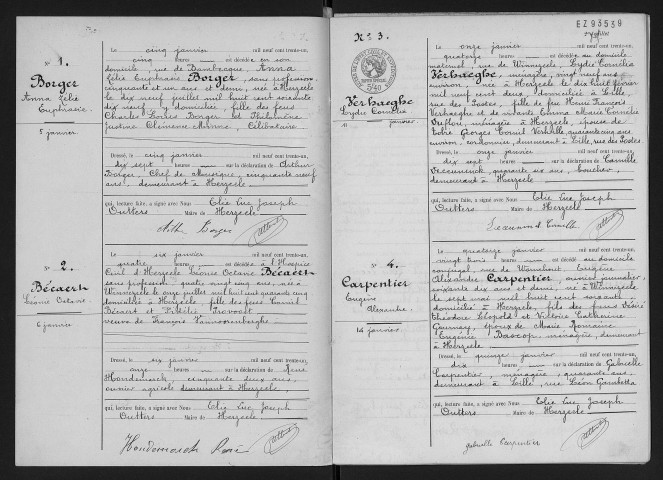 N° 1.
Borger
Anna Zélie
Euphrasie
5 janvier
Le cinq janvier mil neuf cent trente-un,
cinq heures est décédée en son
domicile, rue de Bambecque, Anna
Zélie Euphrasie Borger, sans profession,
cinquante et un ans et demi, née à Herzeele
le dix neuf juillet mil huit cent soixante
dix neuf y domiciliée, fille de feus
Charles Louis Borger et Philomène
Justine Clémence Célibataire
Dressé, le cinq janvier mil neuf cent trente-un,
dix sept heures sur la déclaration de Arthur
Borger, Chef de Musique, cinquante neuf
ans, demeurant à Herzeele
qui, lecture faite, a signé avec Nous Elie Luc Joseph
Outters Maire de Herzeele
Arth Borger
N° 2.
Bécaert
Léonie Octavie
6 janvier
Le six janvier mil neuf cent trente-un,
quatre heures est décédée à l'Hospice
Civil d'Herzeele Léonie Octavie Bécaert
sans profession, quatre vingt cinq ans, née à
Winnezeele le onze juillet mil huit cent quarante cinq
domiciliée à Herzeele, fille de feus
Bécaert et Prevoost
veuve de François
Dressé, le six janvier mil neuf cent trente-un,
onze heures sur la déclaration de René
cinquante deux ans,
ouvrier agricole demeurant à Herzeele
qui, lecture faite, a signé avec Nous Elie Luc Joseph
Outters Maire de Herzeele
René
EZ93539
N° 3.
Verhaeghe
Lydie Cornélie
11 janvier
Le onze janvier mil neuf cent trente-un,
quatorze heures est décédée au domicile
maternel, rue de Winnezeele, Lydie Cornélie
Verhaeghe, ménagère, vingt neuf ans
environ, née à Herzeele le dix huit février
mil neuf cent deux, domiciliée à Lille,
rue des Postes, fille de feu Henri François
Verhaeghe et de vivante Emma Marie Cornélie
ménagère à Herzeele, épouse de
Georges Cornil quarante cinq ans
environ, cordonnier, demeurant à Lille, rue des Postes
Dressé, le onze janvier mil neuf cent trente-un,
dix sept heures sur la déclaration de Camille
soixante six ans, boucher,
demeurant à Herzeele
qui, lecture faite, a signé avec Nous Elie Luc Joseph
Outters Maire de Herzeele
Camille
N° 4.
Carpentier
Eugène
Alexandre
14 janvier
Le quatorze janvier mil neuf cent trente-un,
vingt trois heures est décédé au domicile
conjugal, rue de Wormhout, Eugène
Alexandre Carpentier, ouvrier journalier,
soixante dix ans et demi, né à Winnezeele
le sept mai mil huit cent soixante
domicilié à Herzeele, fils des feus Désiré
Théodore Léopold et Victoire Catherine
époux de Marie Romaine
Eugénie Bascop, ménagère, demeurant
à Herzeele
Dressé, le quinze janvier mil neuf cent trente-un,
dix heures sur la déclaration de Gabrielle
Carpentier, ménagère, quarante ans,
demeurant à Lille, rue Léon Gambetta
qui, lecture faite, a signé avec Nous Elie Luc Joseph
Outters Maire de Herzeele
Gabrielle Carpentier